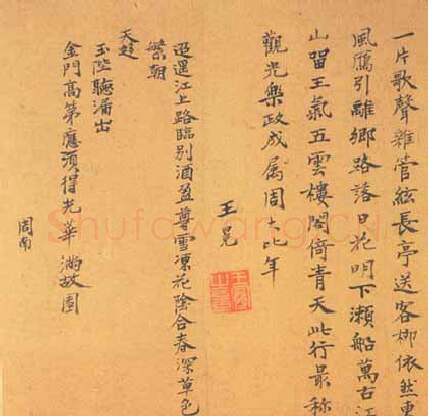 一片歌聲雜管絃長亭送客柳依然東
風鴈引離鄉路落日花明下瀨船萬古江
山留王氣五雲樓閣倚青天此行最称
觀光樂政成属周大比年
王
江上路臨别酒盈尊雪凍花陰合春深草色
繁朝
天趨
玉陛聽漏出
金門高第應須得光華滿故園
周南
Shufawang.CN